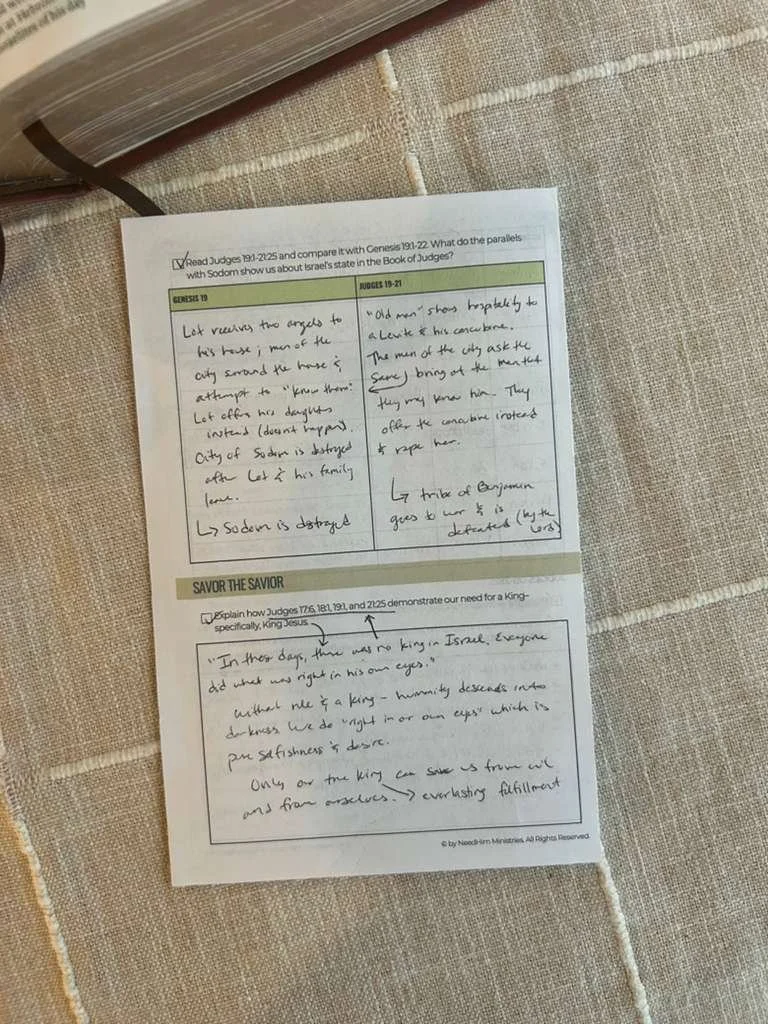 at
of his day
Read Judges 19:1-21:25 and compare it with Genesis 19:1-22. What do the parallels
with Sodom show us about Israel's state in the Book of Judges?
GENESIS 19
Lot receives two angels to
his house; men of the
city surround the house &
attempt to "know them".
Lot offers his daughters
instead (doesn't happen).
City of Sodom is destroyed
after Lot & his family
leave.
↳ Sodom is destroyed
JUDGES 19-21
"Old man" shows hospitality to
a Levite & his concubine.
The men of the city ask the
same) bring out the man that
they may know him. They
offer the concubine instead
& rape her.
↳ tribe of Benjamin
goes to war & is
defeated (by the
Lord)
SAVOR THE SAVIOR
Explain how Judges 17:6, 18:1, 19:1, and 21:25 demonstrate our need for a King-
specifically, King Jesus.
"In those days, there was no king in Israel. Everyone
did what was right in his own eyes."
without rule & a king – humanity descends into
darkness. We do "right in our own eyes" which is
pure selfishness & desire.
Only our true king can save us from evil
and from ourselves. → everlasting fulfillment
© by NeedHim Ministries. All Rights Reserved.